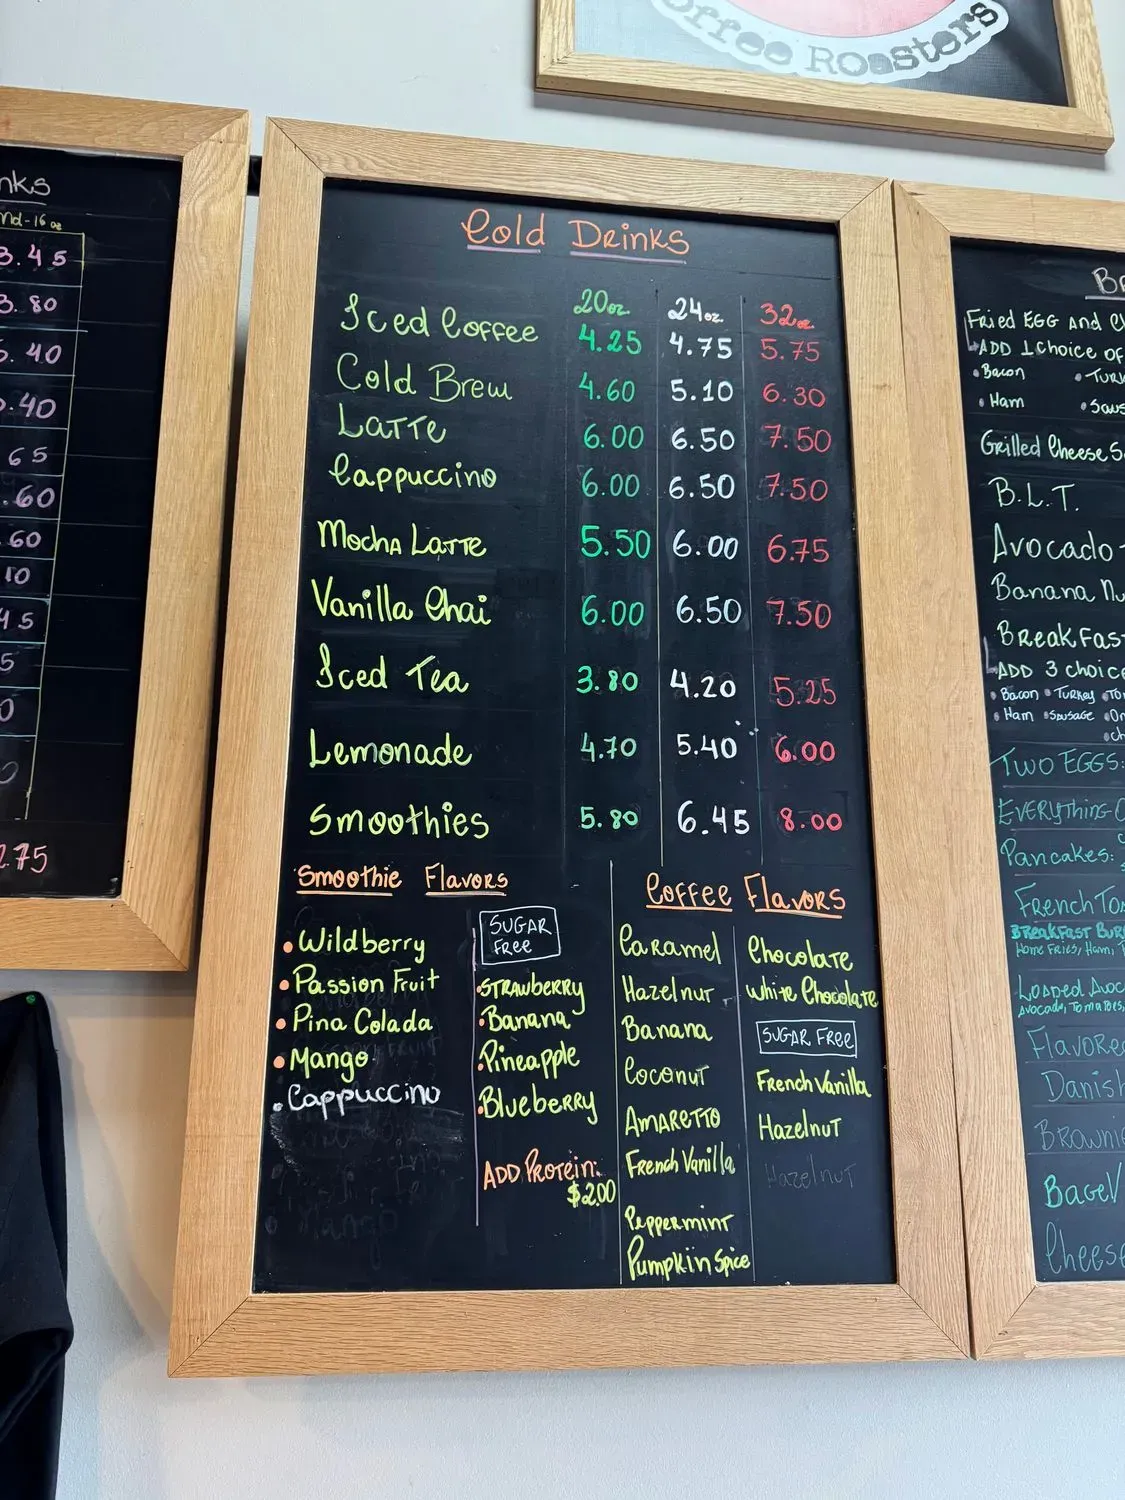 Roasters
3.45
3.80
.40
.40
65
.60
.60
10
45
5
2.75
Cold Drinks
20oz 24oz 32oz
Iced Coffee 4.25 4.75 5.75
Cold Brew 4.60 5.10 6.30
Latte 6.00 6.50 7.50
Cappuccino 6.00 6.50 7.50
Mocha Latte 5.50 6.00 6.75
Vanilla Chai 6.00 6.50 7.50
Iced Tea 3.80 4.20 5.25
Lemonade 4.70 5.40 6.00
Smoothies 5.80 6.45 8.00
Smoothie Flavors
• Wildberry
• Passion Fruit
• Pina Colada
• Mango
• Cappuccino
SUGAR
FREE
• Strawberry
• Banana
• Pineapple
• Blueberry
ADD Protein:
$2.00
Coffee Flavors
Caramel
Hazelnut
Banana
Coconut
Amaretto
French Vanilla
Peppermint
Pumpkin Spice
Chocolate
White Chocolate
SUGAR FREE
French Vanilla
Hazelnut
Hazelnut
Fried EGG and
ADD 1 Choice of
• Bacon
• Ham
Grilled Cheese
B.L.T.
Avocado
Banana
Breakfast
ADD 3 choice
• Bacon • Turkey
• Ham • Sausage
Two EGGS:
Everything
Pancakes:
French
Breakfast
Home Fries, Ham,
Loaded
Avocado, Tomatoes,
Danish
Bagel
Cheese